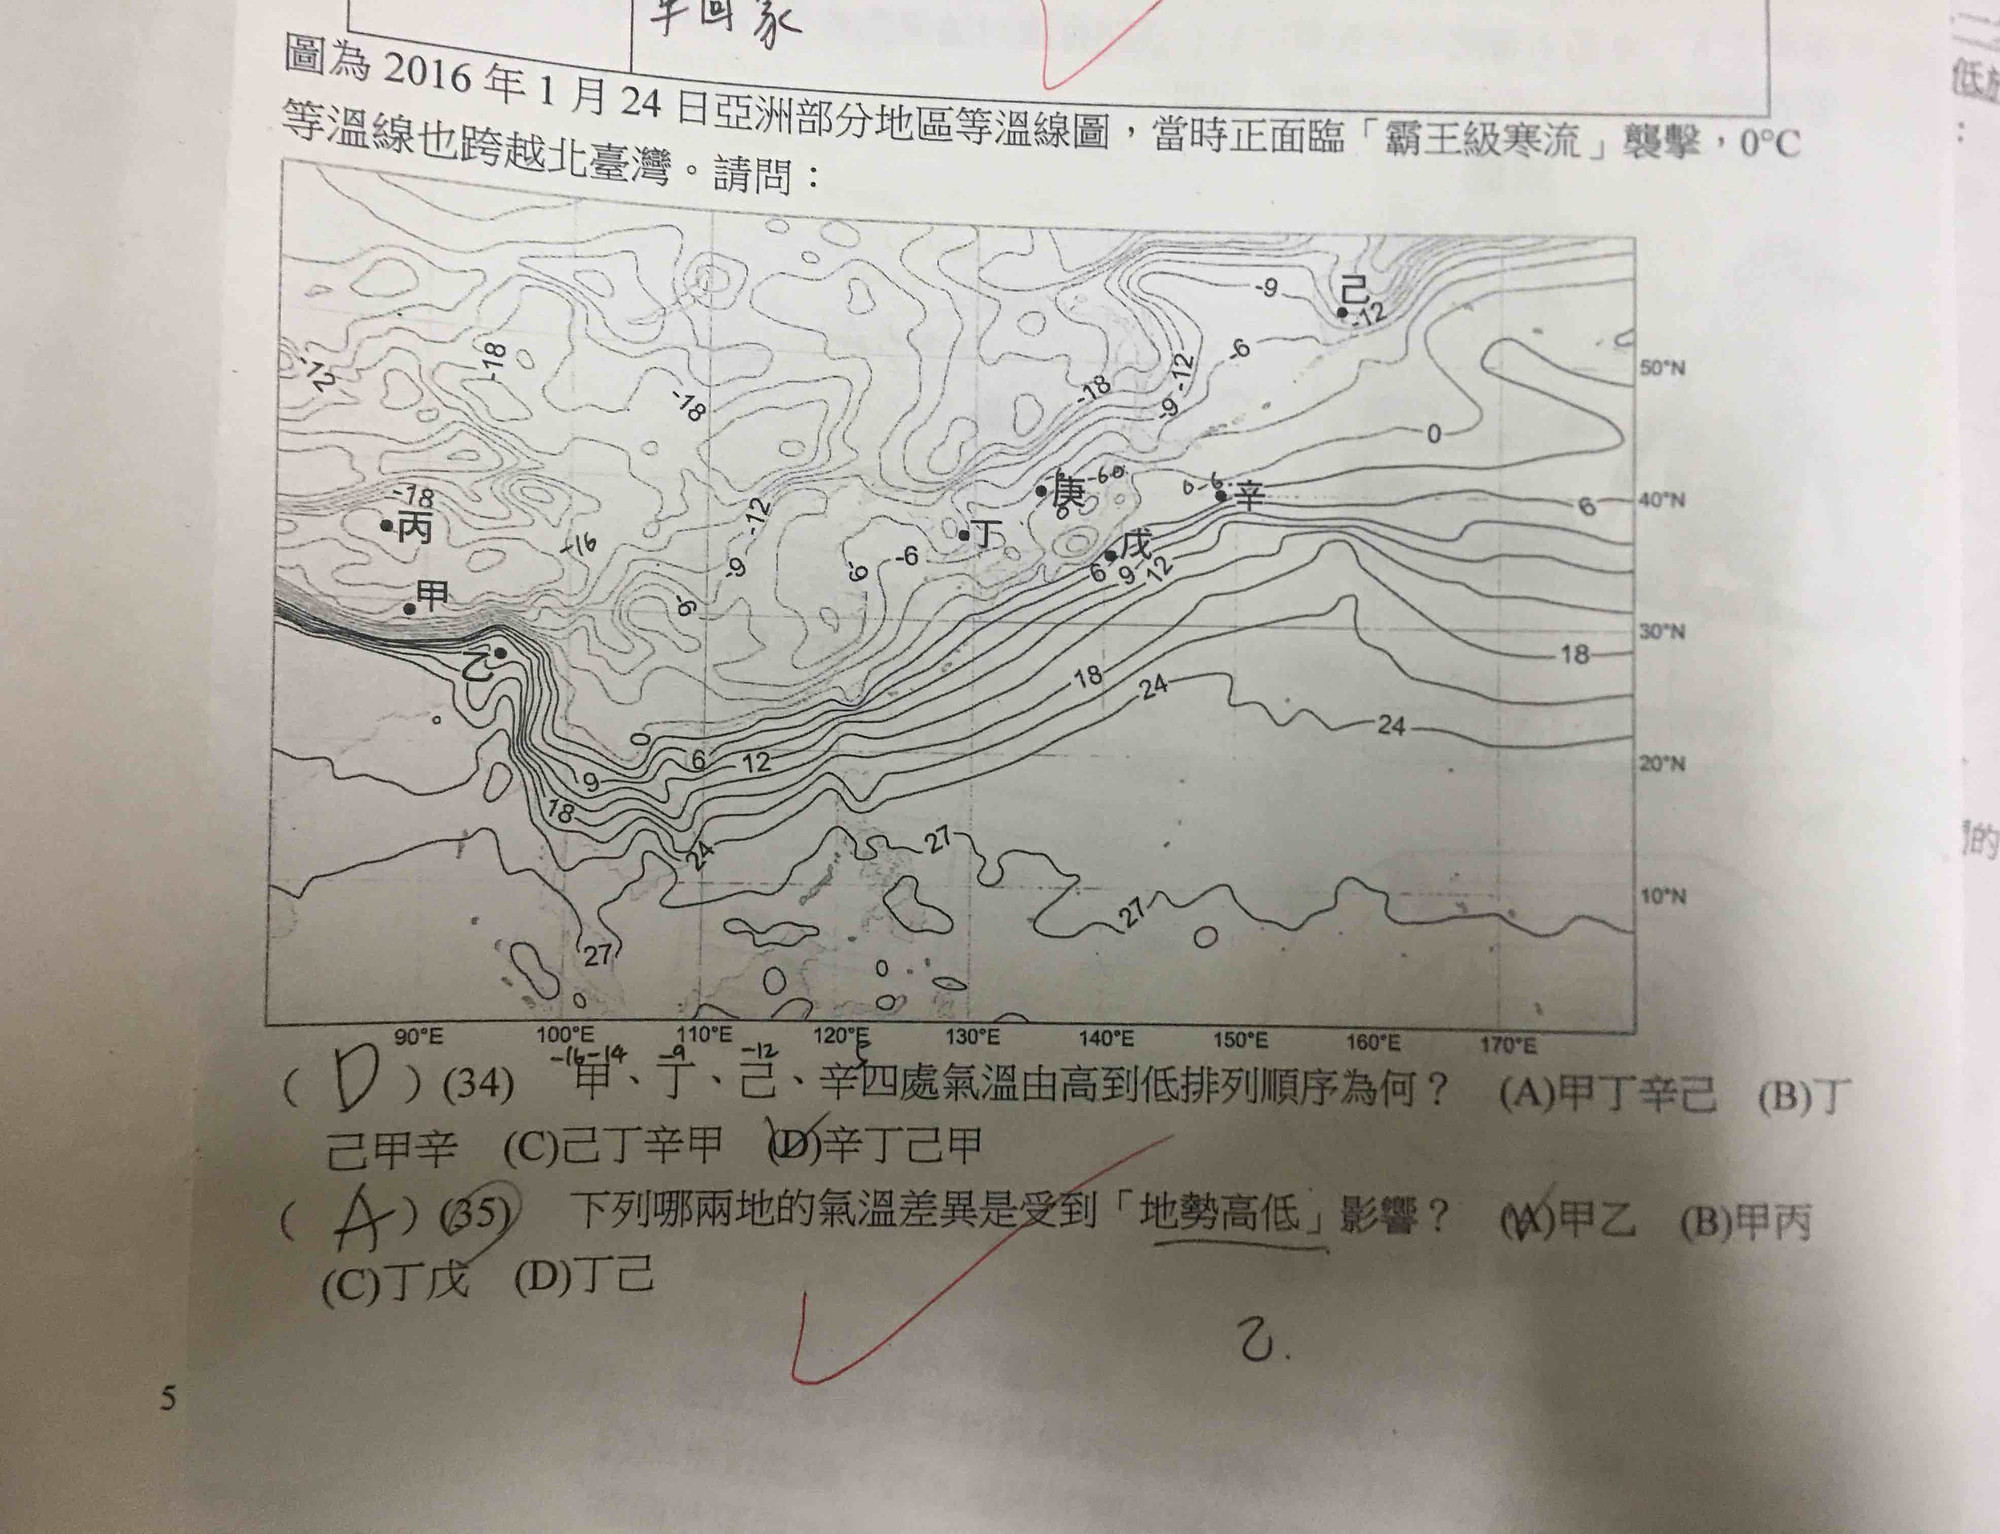 車回家
圖為 2016 年 1 月 24 日亞洲部分地區等溫線圖，當時正面臨「霸王級寒流」襲擊，0°C
等溫線也跨越北臺灣。請問：
己
-9
-12
-6
-12
-18
-12
-18
50°N
-18
-9
0
-18
庚
-60
0-6
辛
6
40°N
丙
-12
丁
-16
-9
-6
戊
甲
6
9
12
-9
30°N
乙
18
18
24
24
0
6
12
20°N
9
18
24
27
27
10°N
27
90°E
100°E
110°E
120°E
130°E
140°E
150°E
160°E
170°E
-16-14
-9
-12
( D ) (34) 甲、丁、己、辛四處氣溫由高到低排列順序為何？ (A)甲丁辛己 (B)丁
己甲辛 (C)己丁辛甲 (D)辛丁己甲
( A ) (35) 下列哪兩地的氣溫差異是受到「地勢高低」影響？ (A)甲乙 (B)甲丙
(C)丁戊 (D)丁己
乙.
5